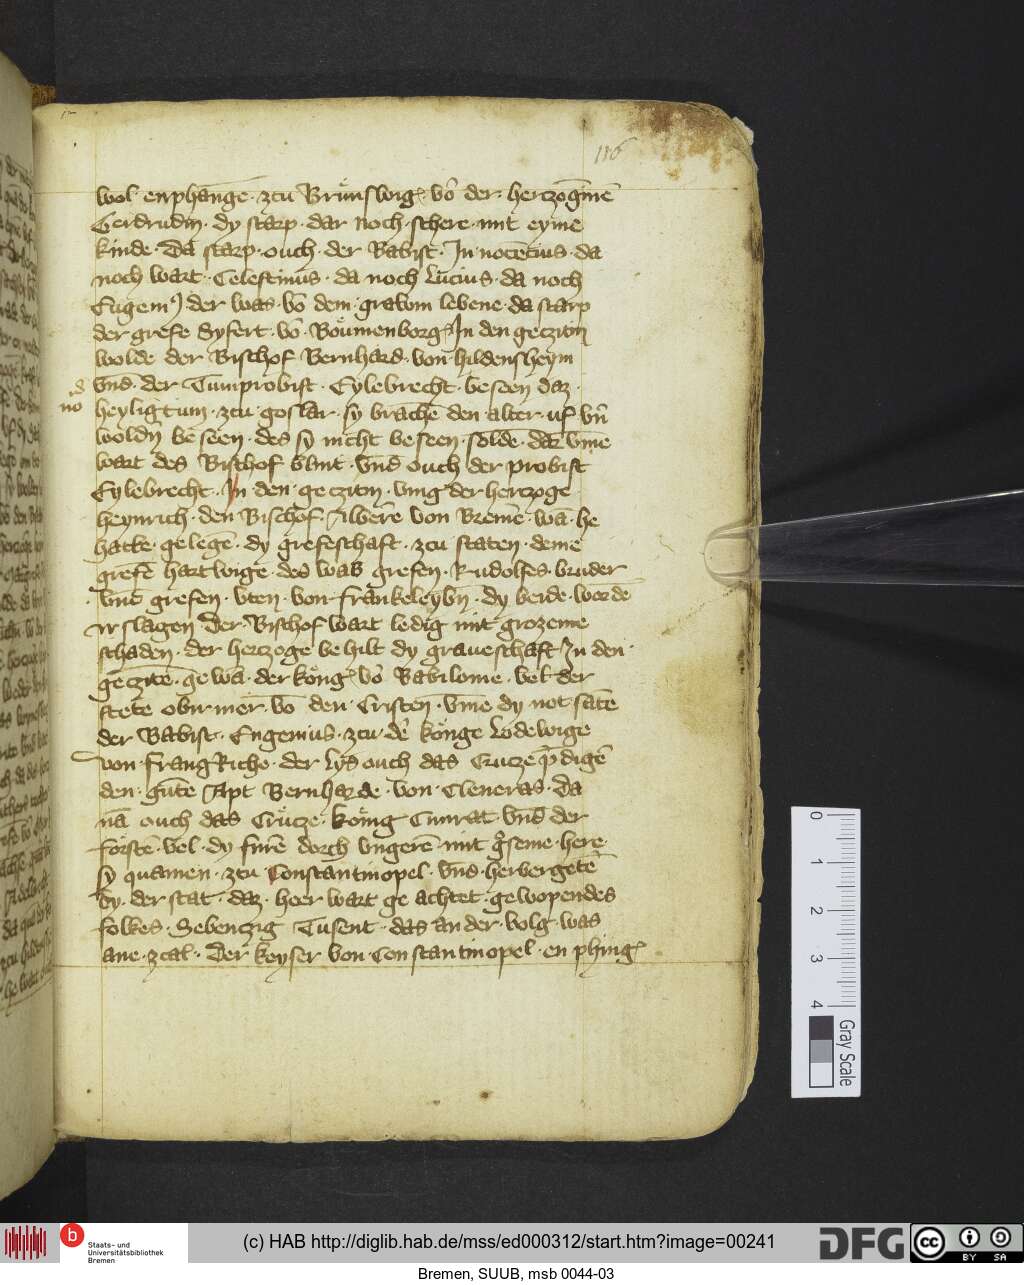 116
wol · enphange · zcu Brůnswig · vō der · hertzogīne
Gerdrudin · dy starp · dar noch · schere · mit eyme
kinde · Da starp · ouch · der Babist · Innocēcius · da
noch wart · Celestinus · da noch Lucius · da noch
Eugeni⁹ · der was · vō dem · grabom lebene · da starp
der grefe Syfert · vō · Boůmenborg · In den geczitin
wolde der Bischof Bernhard · von hildensheym
vnd · der Tumprobist · Eylebrecht · beseen daz ·
heyligtum · zcu goslar · sy brachē den alter · uf vn̄
no
woldin beseen · des sy nicht beseen · soldē · dar vmme
wart des Bischof blint · vnd ouch der probist
Eylebrecht · In den · geczitin · ving der hertzoge ·
heynrich · den Bischof · Albere von Bremē · wā · he
hatte · gelegē · dy grefeschaft · zcu staten · deme
grefē hartwige · des was grefen · Rudolfes · bruder
· vnd grefen · vten · von frankeleybin · dy beide · wordē
irslagen Der Bischof wart ledig mit grozeme
schaden · der hertzoge behilt dy graueschaft In den ·
geczitē · gewā · der kōng · vō Babilonie · vel der
stete obir mer · vō den · Cristen · vmme dy not santē
der Babist · Eugenius · zcu dē kōnge Lodewige
von frangkriche · der lys ouch das Cruczepdigē
den · gutē Apt Bernharde · von · Cleneras · Da
nā ouch das Crůcze · kōnig Cunrat · vnd der
förstē · vel · dy furē dorch vngerē mit groseme · here
sy quamen · zcu Constantinopel · vnd · herbergetē
by · der stat · daz · heer wart geachtet · gewopendes
folkes · Sebenczig Tusent · das ander volg · was
ane · zcal · Der keyser von Constantinopel · enphing
0 1 2 3 4
Gray Scale
b
Staats- und
Universitätsbibliothek
Bremen
(c) HAB http://diglib.hab.de/mss/ed000312/start.htm?image=00241
DFG
cc BY SA
Bremen, SUUB, msb 0044-03